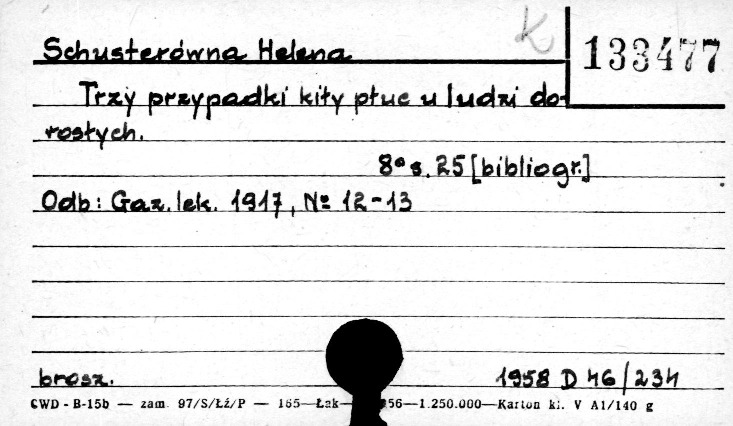 K
133477
Schusterówna Helena
Trzy przypadki kiły płuc u ludzi do-
rosłych.
8° s. 25 [bibliogr.]
Odb: Gaz. lek. 1917, № 12-13
brosz.
1958 D 46/234
CWD - B-15b — zam. 97/S/Łź/P — 165—Łzk— 56—1.250.000—Karton kl. V A1/140 g